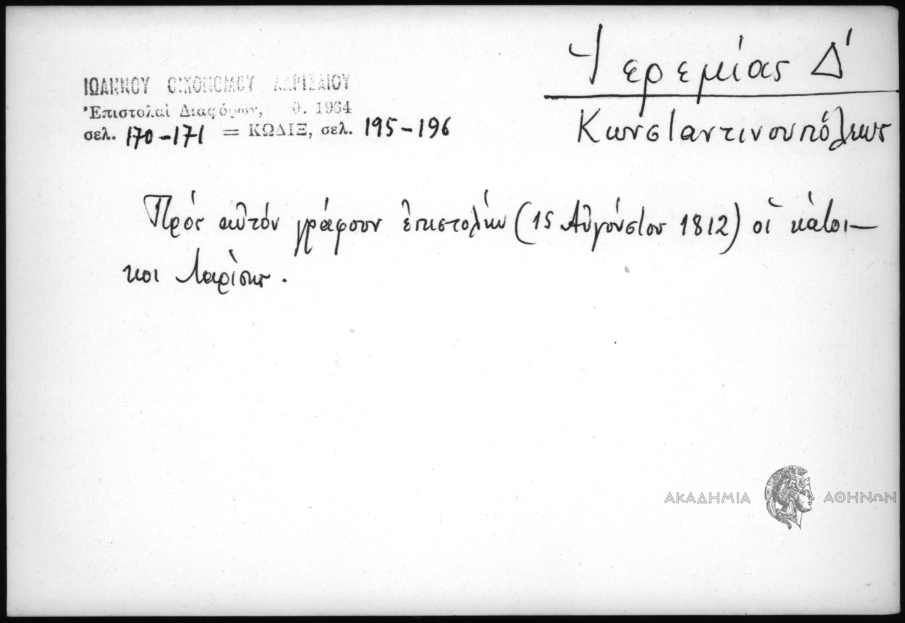 ΙΩΑΝΝΟΥ ΟΙΚΟΝΟΜΟΥ ΛΑΡΙΣΑΙΟΥ
Ἐπιστολαὶ Διαφόρων, 1964
σελ. 170-171 = ΚΩΔΙΞ, σελ. 195-196
Ἱερεμίας Δ'
Κωνσταντινουπόλεως
Πρός αὐτόν γράφουν ἐπιστολήν (15 Αὐγούστου 1812) οἱ κάτοι-
κοι Λαρίσης.
ΑΚΑΔΗΜΙΑ ΑΘΗΝΩΝ